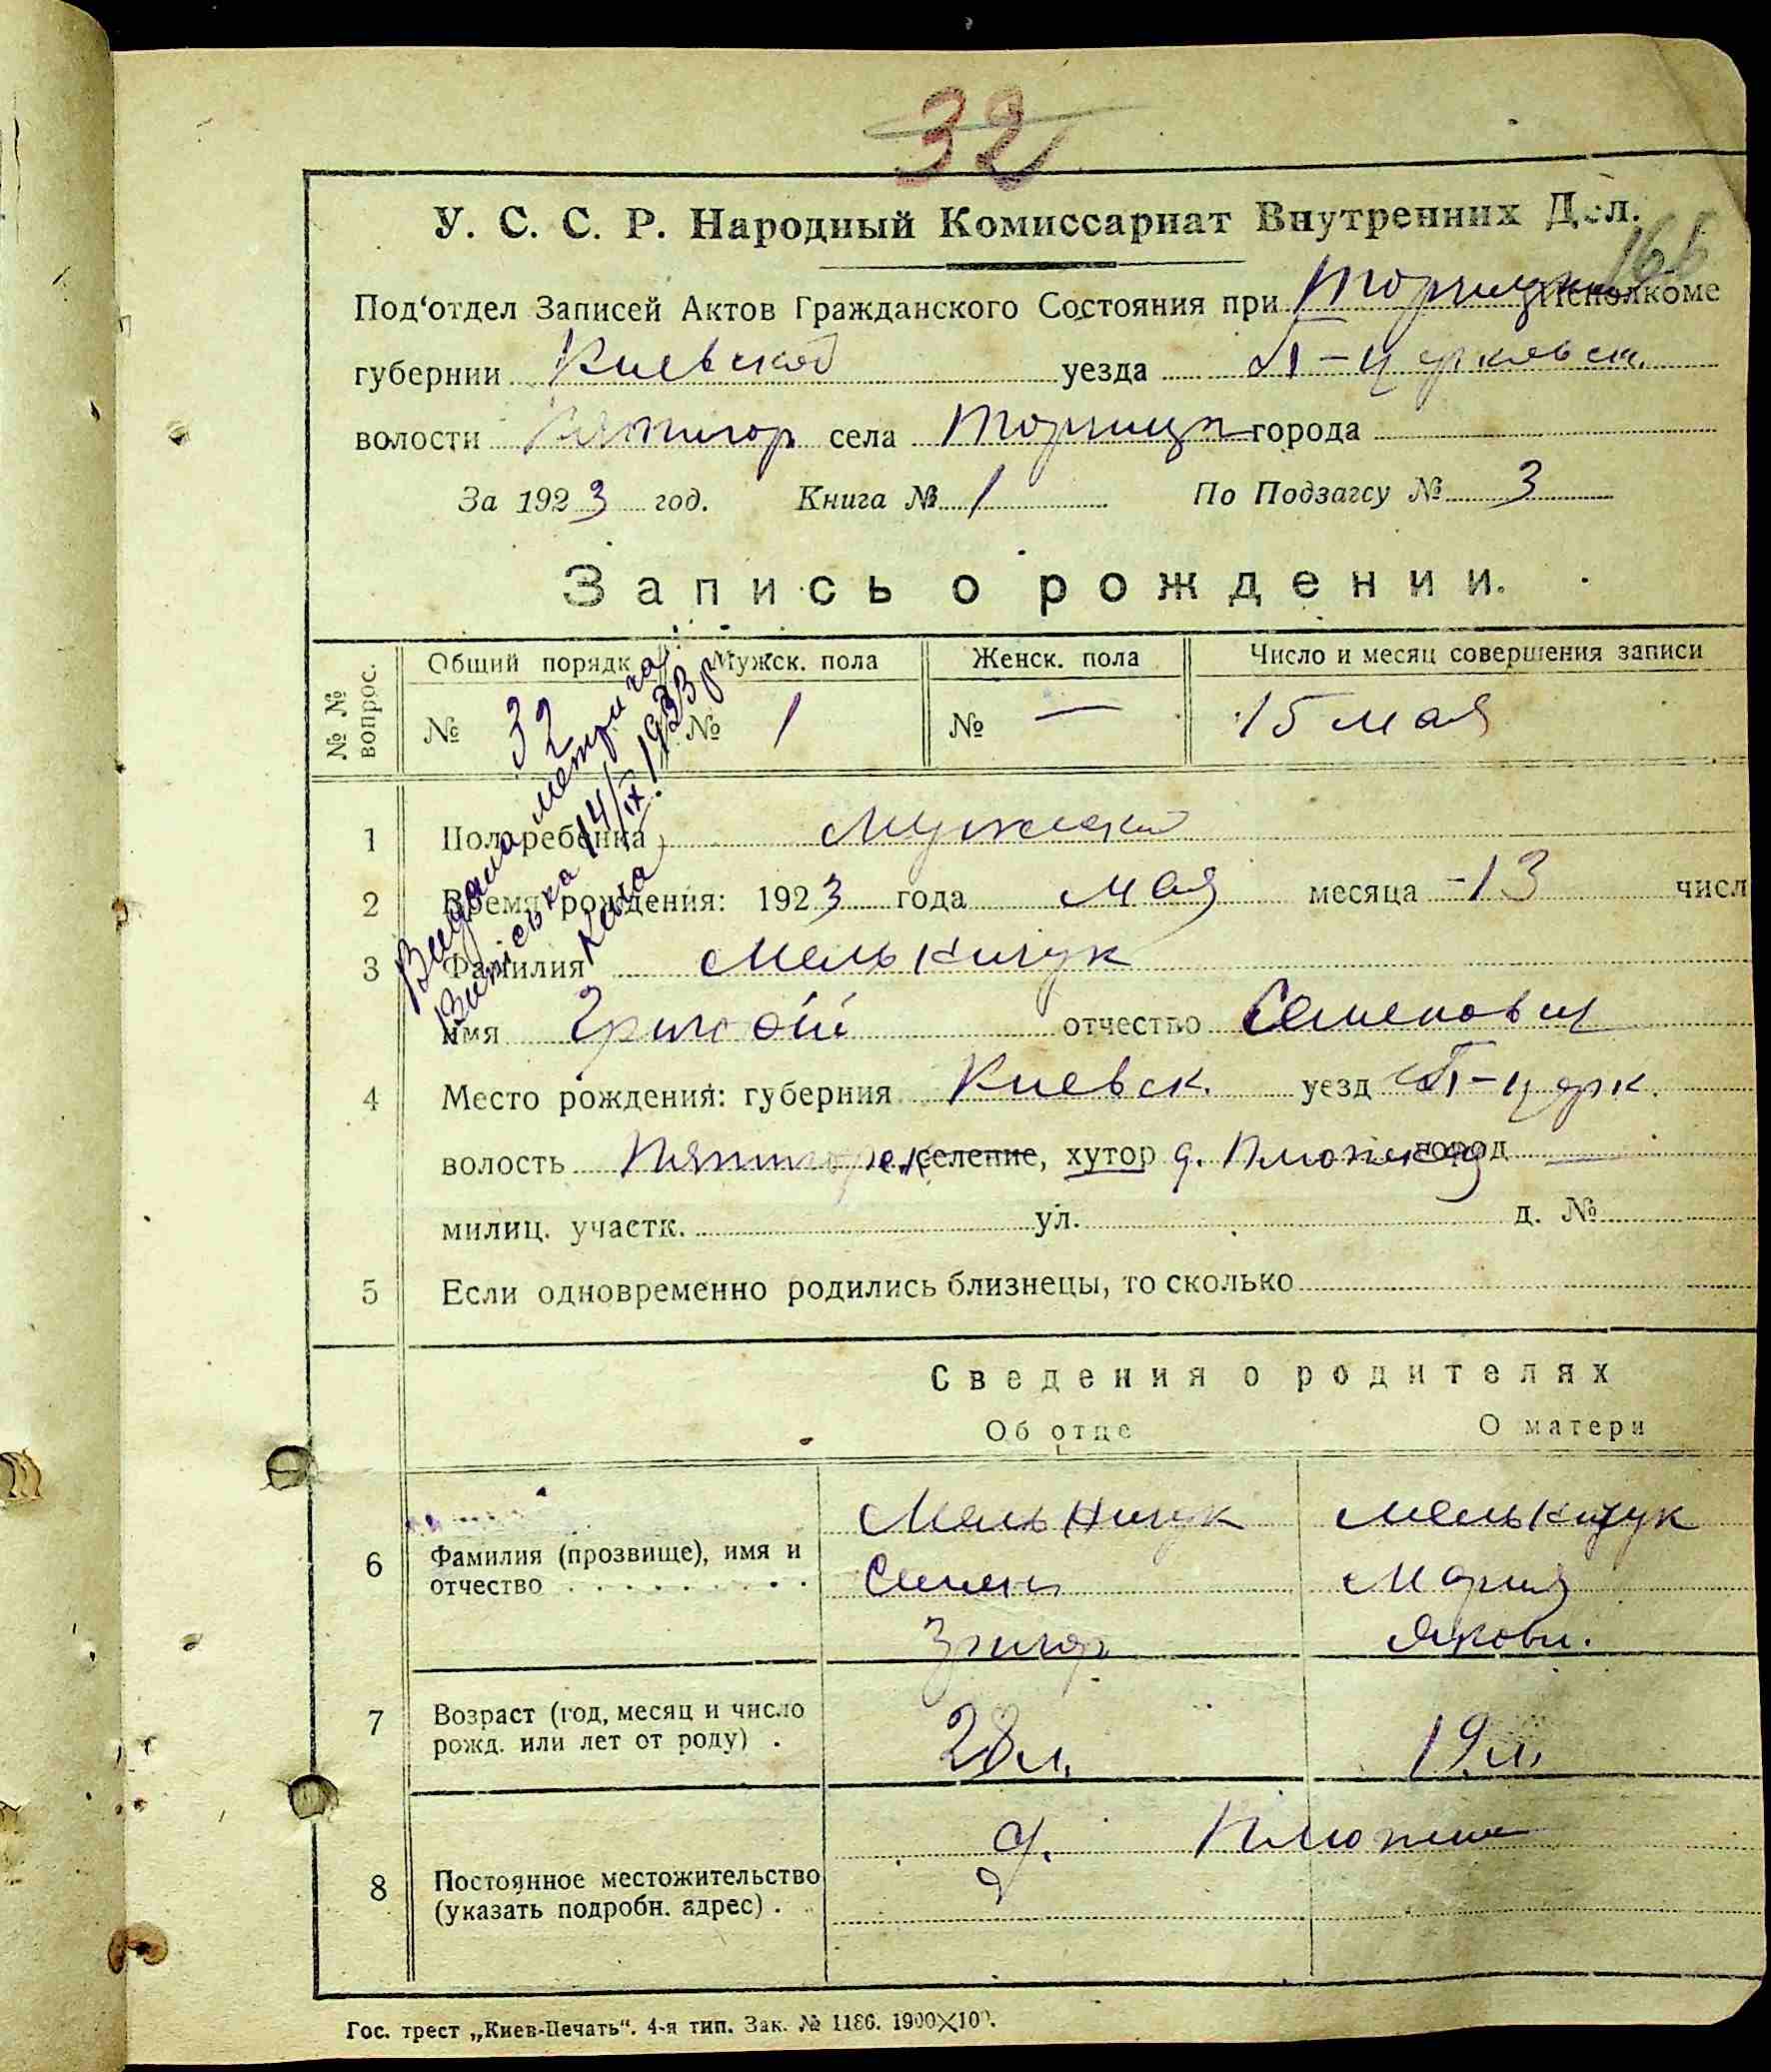 32
У. С. С. Р. Народный Комиссариат Внутренних Дел.
166
Под‘отдел Записей Актов Гражданского Состояния при Исполкоме
губернии Киевской уезда Б-церковск.
волости Пятигор. села города
За 1923 год. Книга № 1 По Подзагсу № 3
Запись о рождении.
№№ вопрос.
Общий порядк Мужск. пола Женск. пола Число и месяц совершения записи
№ 32 № 1 № — 15 мая
Видана метрична
Випіска 14/IX 1933 р
1 Пол ребенка Мужской
2 Время рождения: 1923 года мая месяца -13 числ
3 Фамилия Мельничук
имя Григорий отчество Семенович
4 Место рождения: губерния Киевск. уезд Б-церк.
волость Пятигорск. селение, хутор д. город —
милиц. участк. ул. д. №
5 Если одновременно родились близнецы, то сколько
Сведения о родителях
Об отце О матери
Мельничук Мельничук
6 Фамилия (прозвище), имя и
отчество Семен Мария
Григор Яковл.
7 Возраст (год, месяц и число
рожд. или лет от роду) . 28 л. 19 л.
д.
8 Постоянное местожительство
(указать подробн. адрес) .
Гос. трест „Киев-Печать“. 4-я тип. Зак. № 1186. 1900×100.